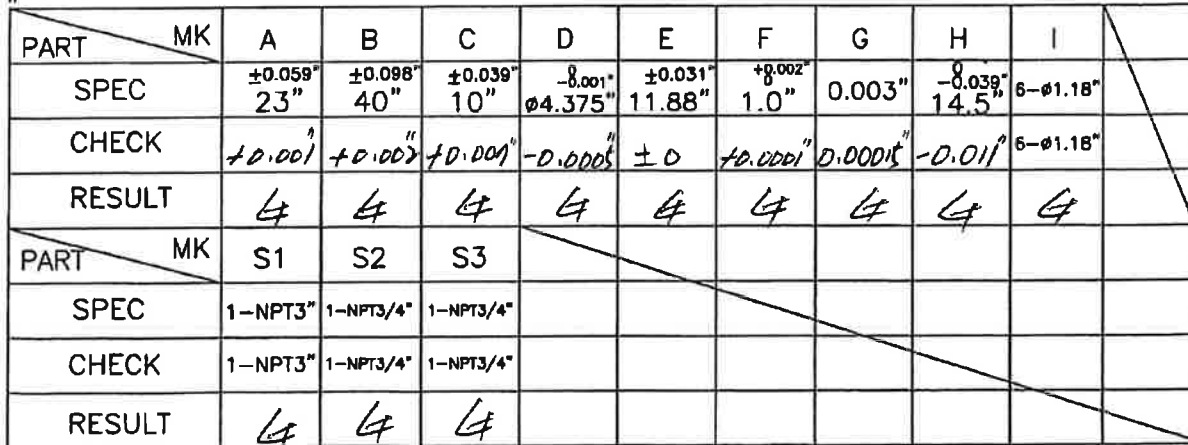 PART MK A B C D E F G H I
SPEC ±0.059" 23" ±0.098" 40" ±0.039" 10" 0 -0.001" ø4.375" ±0.031" 11.88" +0.002" 0 1.0" 0.003" 0 -0.039" 14.5" 6-ø1.18"
CHECK +0.001" +0.002" +0.001" -0.0005" ±0 +0.0001" 0.00015" -0.011" 6-ø1.18"
RESULT
PART MK S1 S2 S3
SPEC 1-NPT3" 1-NPT3/4" 1-NPT3/4"
CHECK 1-NPT3" 1-NPT3/4" 1-NPT3/4"
RESULT